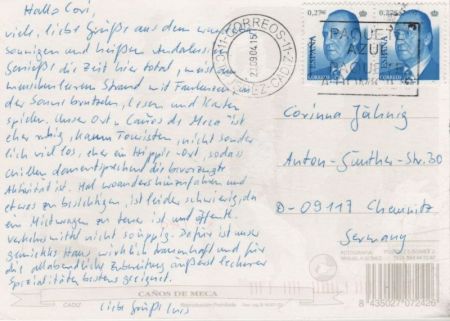 Hallo Cori,
viele, liebe Grüße aus dem
sonnigen und heißen Andalusien.
Genieße die Zeit hier total, meist am
menschenleeren Strand mit Faulenzen in
der Sonne, lesen und Karten
spielen. Unser Ort - Caños de Meca ist
eher ruhig, kaum Touristen, nicht sonder
lich viel los, eher ein Hippie-Ort, sodass
chillen dementsprechend die bevorzugte
Aktivität ist. Mal woanders hinzufahren und
etwas zu besichtigen, ist leider schwierig, da
ein Mietwagen zu teuer ist und öffentl.
Verkehrsmittel nicht so üppig. Dafür ist unser
gemietetes Haus wirklich traumhaft und für
die allabendliche Zubereitung äußerst leckerer
Spezialitäten bestens geeignet.
Liebe Grüße
CORREOS
0,27€
0,27€
ESPAÑA
ESPAÑA
CORREOS
PAQUETE
AZUL
Corinna Jähnig
Anton-Günther-Str. 30
D-09117 Chemnitz
Germany
CAÑOS DE MECA
CADIZ
8 435027 072426